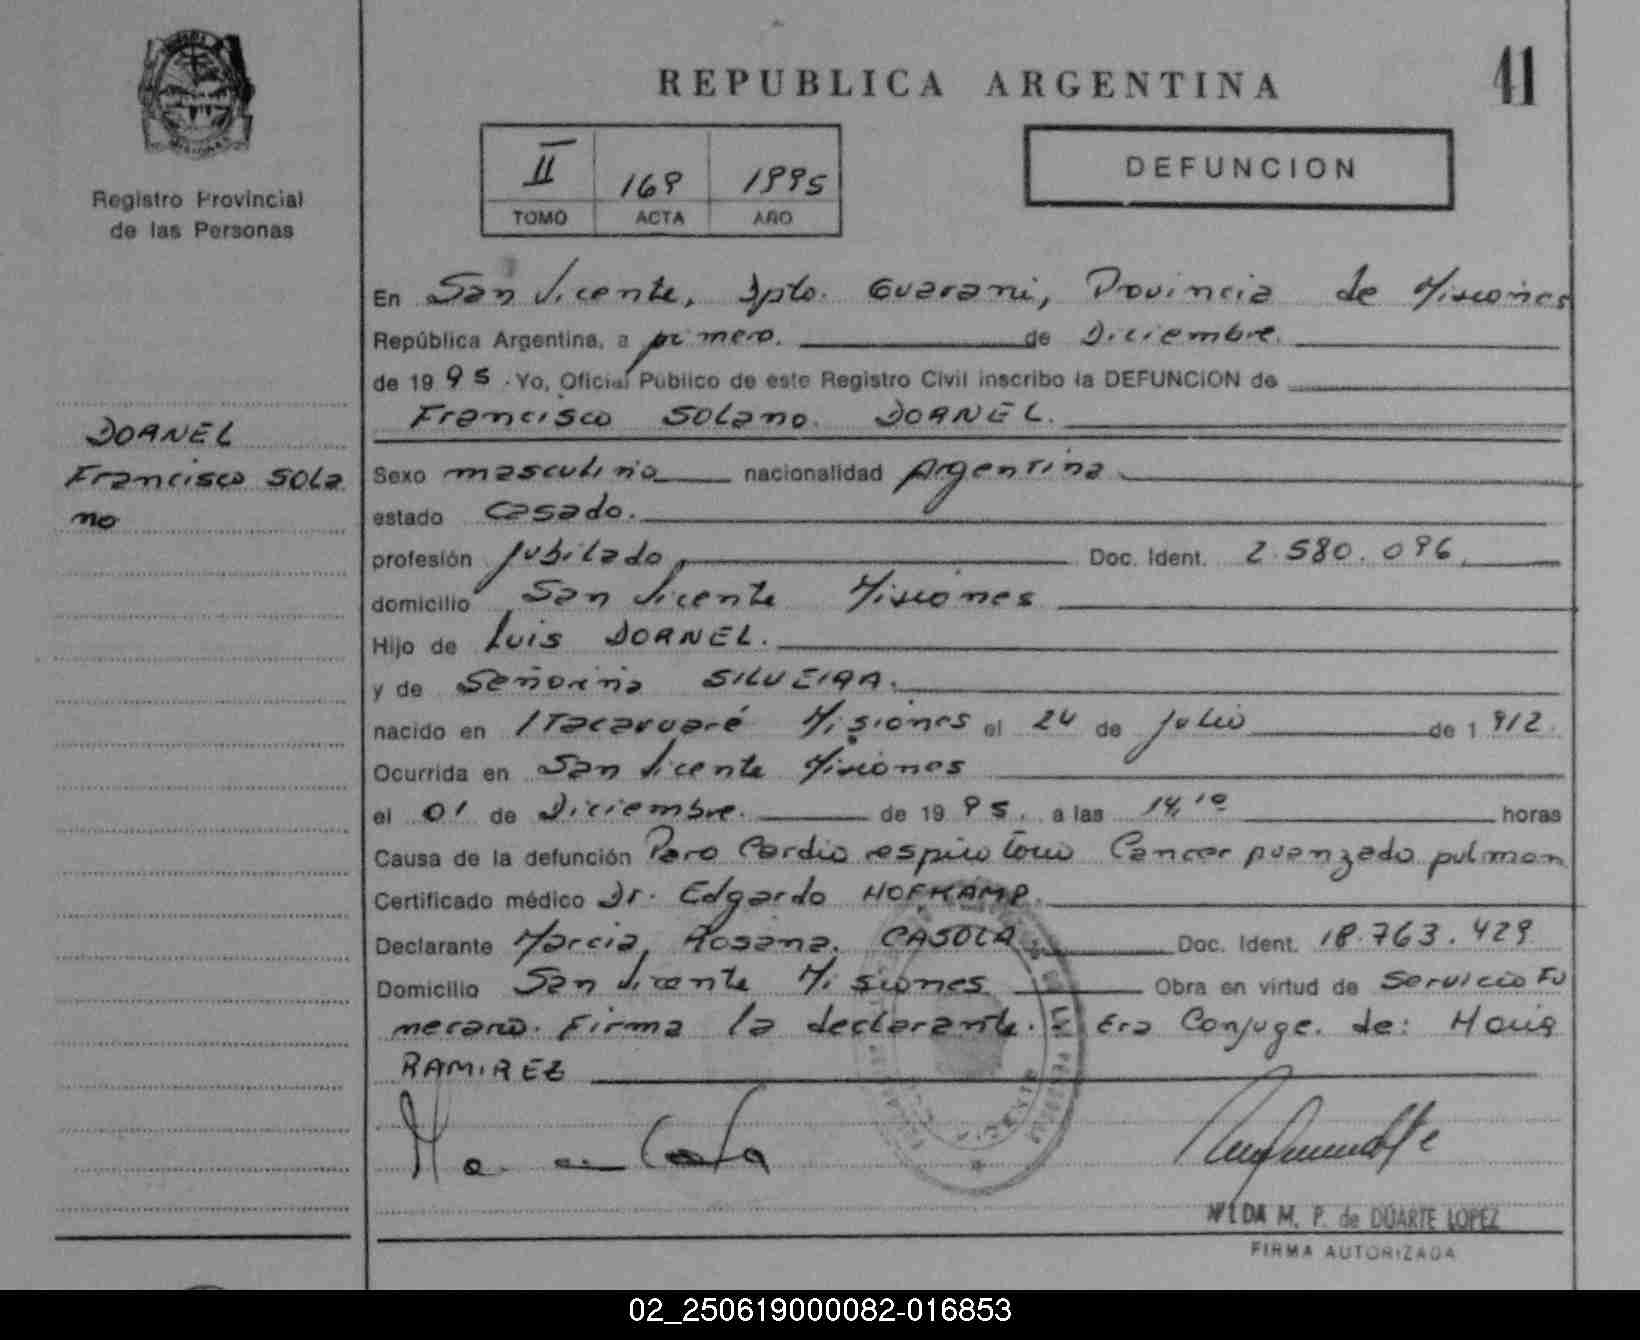 REPUBLICA ARGENTINA
41
II 169 1995
TOMO ACTA AÑO
DEFUNCION
Registro Provincial
de las Personas
DORNEL
Francisco Sola
no
En San Vicente, Dpto. Guarani, Provincia de Misiones
República Argentina, a primero. de Diciembre.
de 1995. Yo, Oficial Público de este Registro Civil inscribo la DEFUNCION de
Francisco Solano. DORNEL.
Sexo masculino nacionalidad Argentina
estado Casado.
profesión Jubilado, Doc. Ident. 2.580.096.
domicilio San Vicente Misiones
Hijo de Luis DORNEL.
y de Señorina SILVEIRA.
nacido en Itacaruaré Misiones el 24 de Julio de 1912.
Ocurrida en San Vicente Misiones
el 01 de Diciembre. de 1995. a las 14,10 horas
Causa de la defunción Paro Cardio respiratorio Cancer avanzado pulmon
Certificado médico Dr. Edgardo HOFKAMP.
Declarante Marcia, Rosana. CASOLA Doc. Ident. 18.763.429
Domicilio San Vicente Misiones Obra en virtud de Servicio Fu
nerario. Firma la declarante. Era Conjuge. de: Maria
RAMIREZ
NILDA M. P. de DUARTE LOPEZ
FIRMA AUTORIZADA
02_250619000082-016853